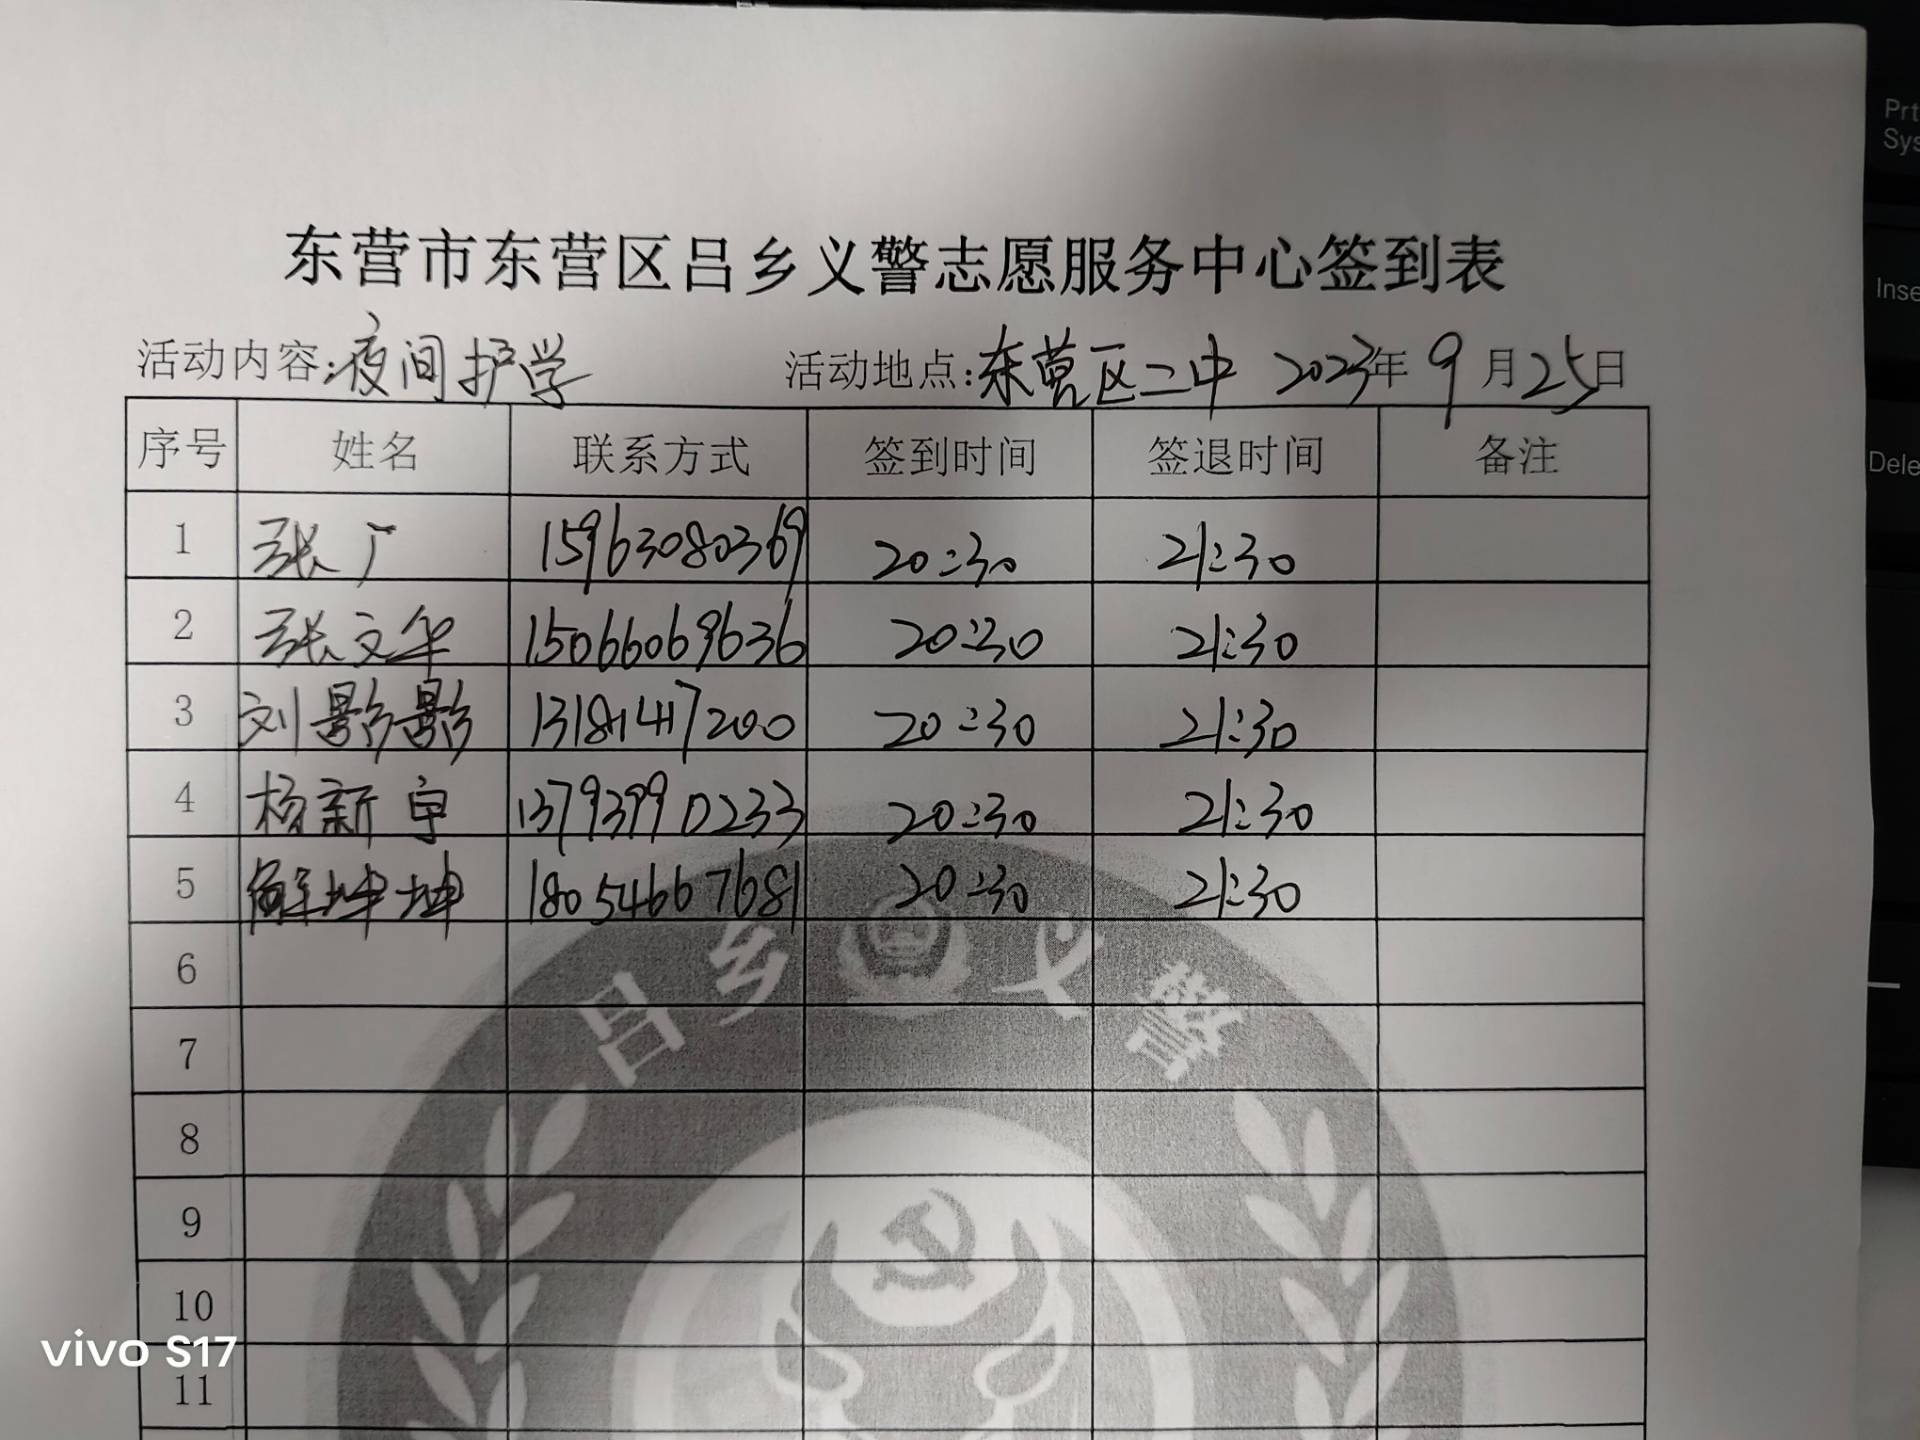 东营市东营区吕乡义警志愿服务中心签到表
活动内容:夜间护学 活动地点:东营区二中 2023年9月25日
序号 姓名 联系方式 签到时间 签退时间 备注
1 张广 15963080369 20:30 21:30
2 张文华 15066069636 20:30 21:30
3 刘影影 13181417200 20:30 21:30
4 杨新宇 13793990233 20:30 21:30
5 解坤坤 18054667681 20:30 21:30
6
7
8
9
10
11
吕乡义警
vivo S17
Prt
Sys
Inse
Dele